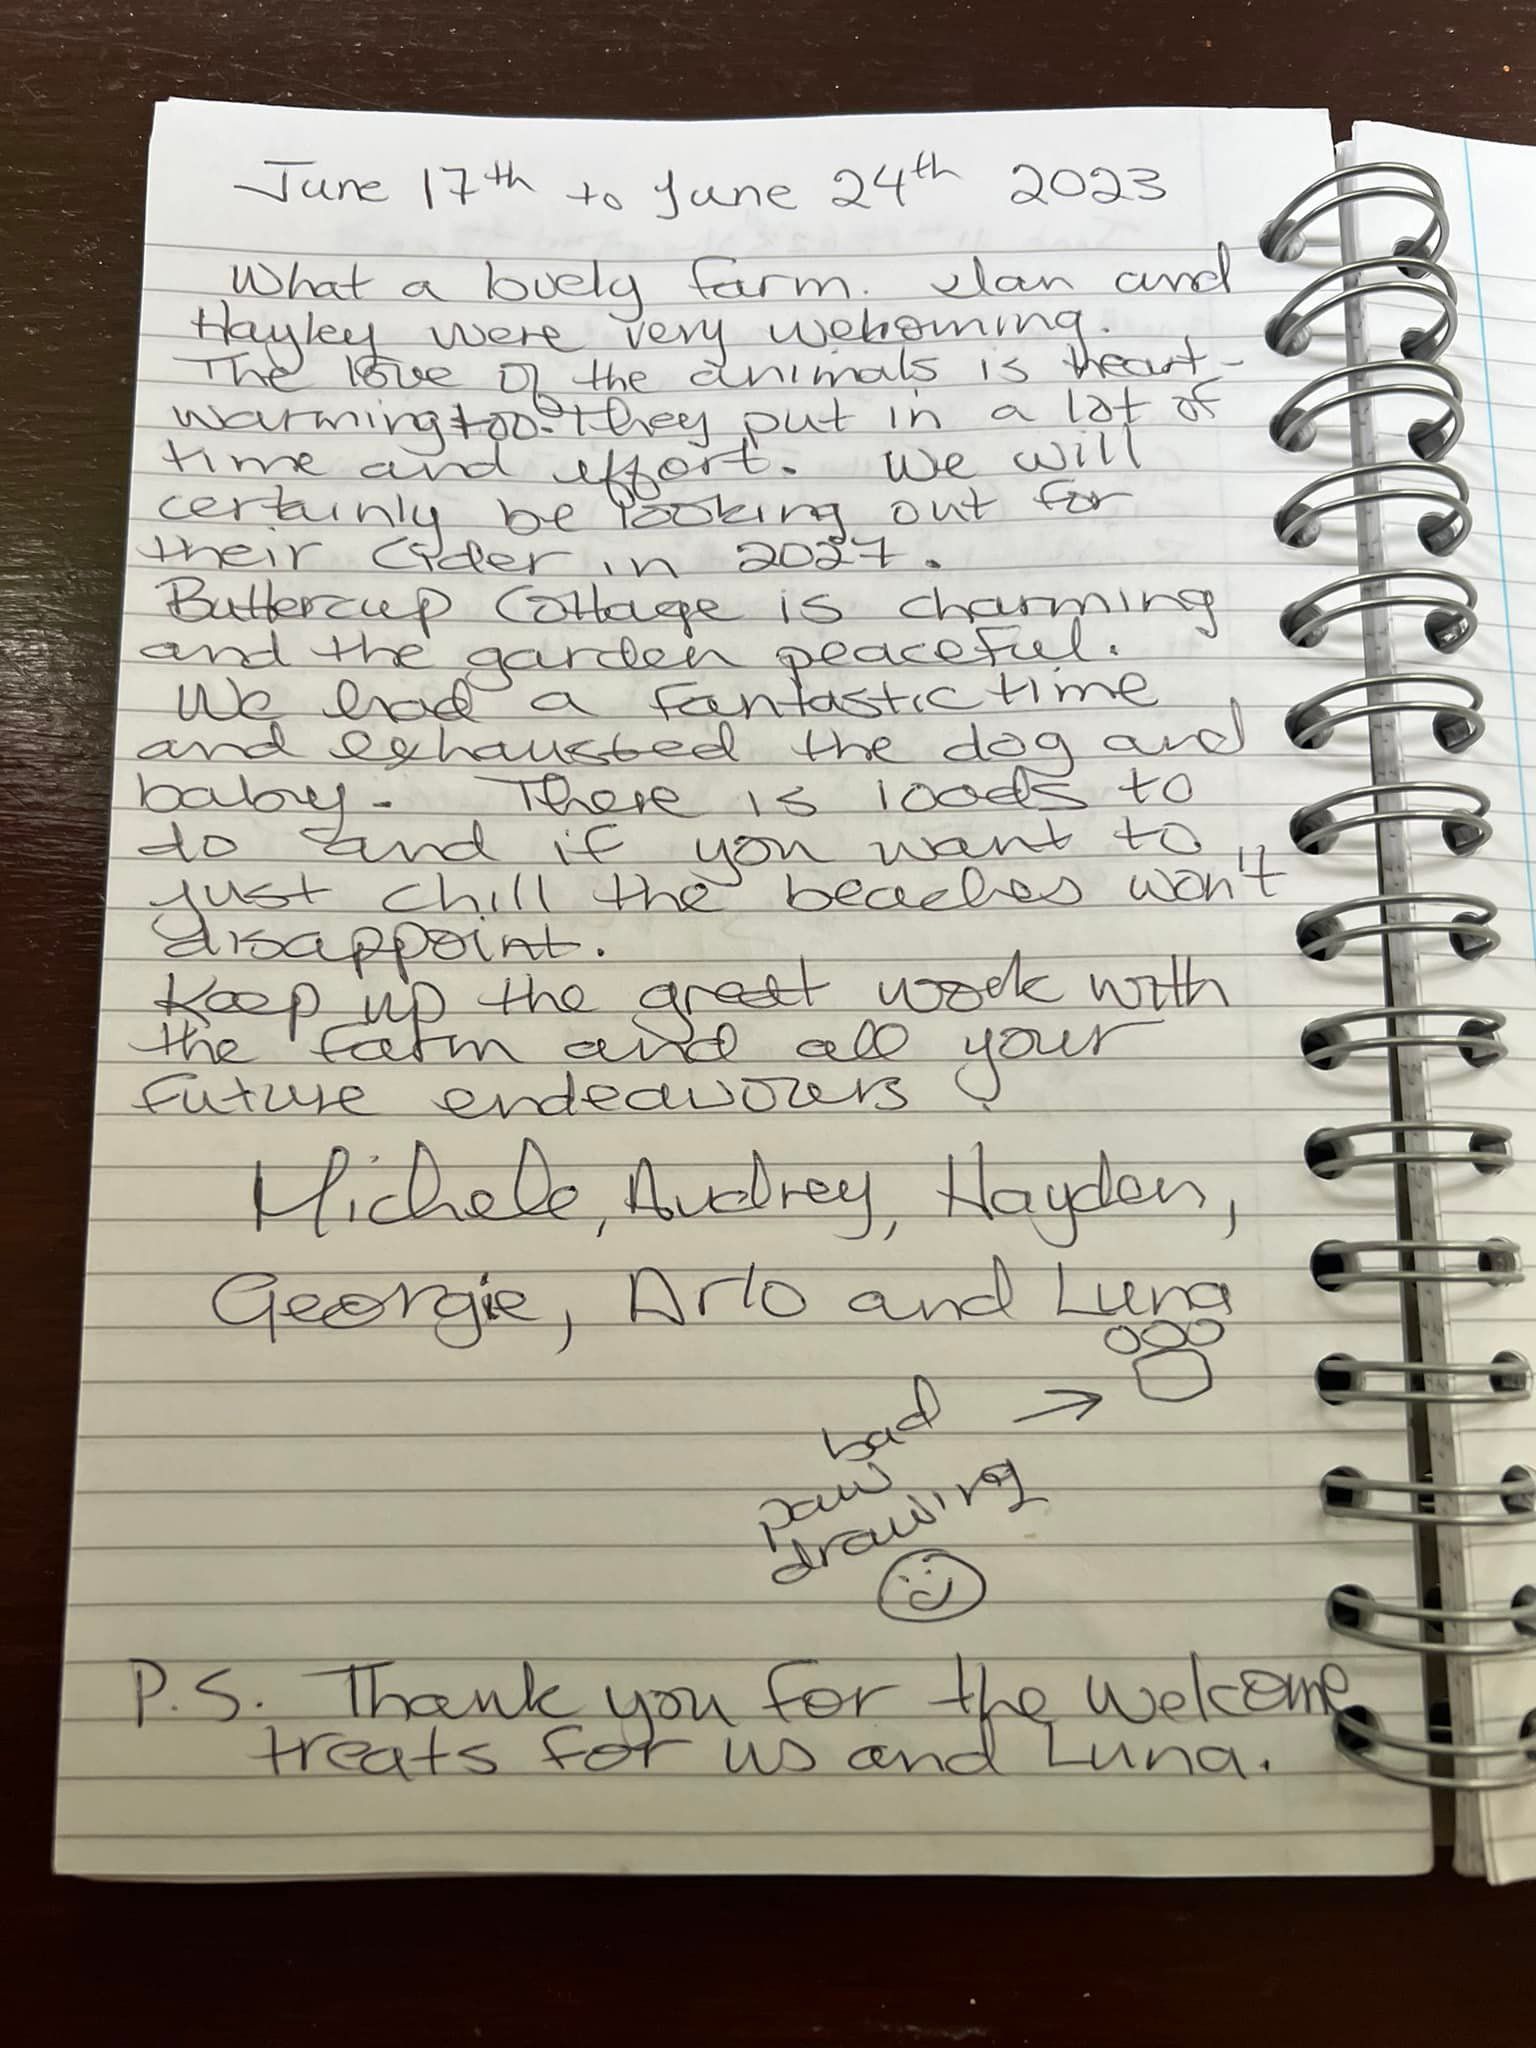 June 17th to June 24th 2023
What a lovely farm. Ian and
Hayley were very welcoming.
The love of the animals is heart-
warming too. They put in a lot of
time and effort. We will
certainly be looking out for
their Cider in 2027.
Buttercup Cottage is charming
and the garden peaceful.
We had a fantastic time
and exhausted the dog and
baby. There is loads to
do and if you want to
just chill the beaches won't
disappoint.
Keep up the great work with
the farm and all your
future endeavours
Michele, Audrey, Hayden,
Georgie, Arlo and Luna
bad →
paw
drawing
P.S. Thank you for the welcome
treats for us and Luna.